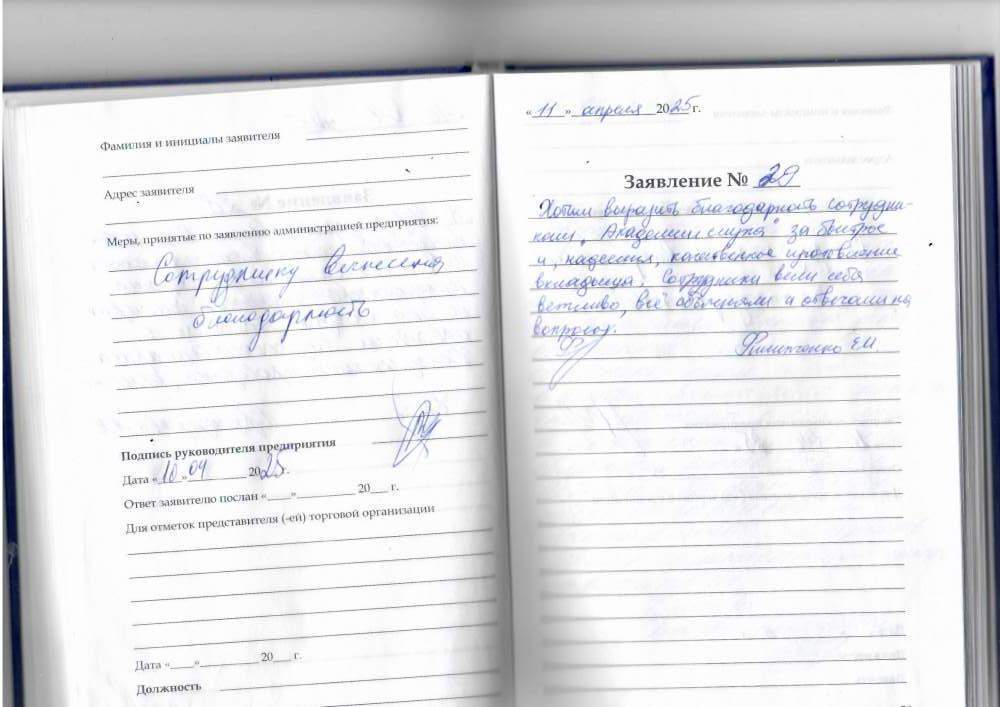 Фамилия и инициалы заявителя
Адрес заявителя
Меры, принятые по заявлению администрацией предприятия:
Сотруднику вынесена
благодарность
Подпись руководителя предприятия
Дата « 10 » 04 2025 г.
Ответ заявителю послан «___»__________ 20___ г.
Для отметок представителя (-ей) торговой организации
Дата «____»__________ 20___ г.
Должность
« 11 » апреля 2025 г.
Заявление № 29
Хотим выразить благодарность сотрудни-
кам „Академии слуха" за быстрое
и, надеемся, качественное изготовление
вкладыша. Сотрудники вели себя
вежливо, всё объясняли и отвечали на
вопросы.
Е.И.